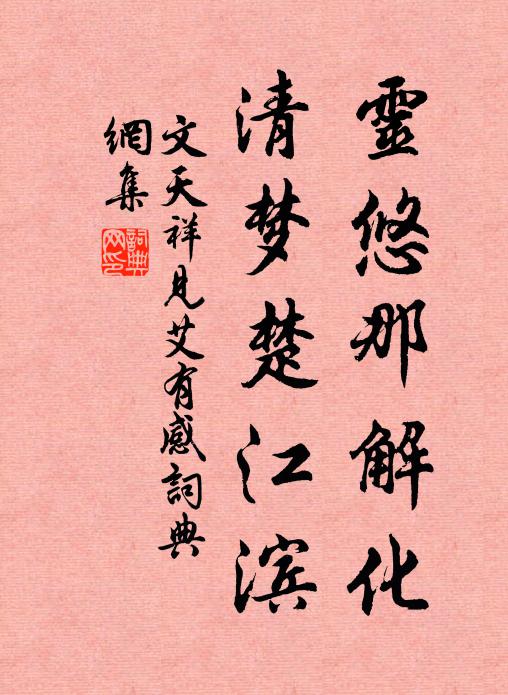 靈悠那解化
清梦楚江滨
文天祥見艾有感詞典
網集
詞典网印